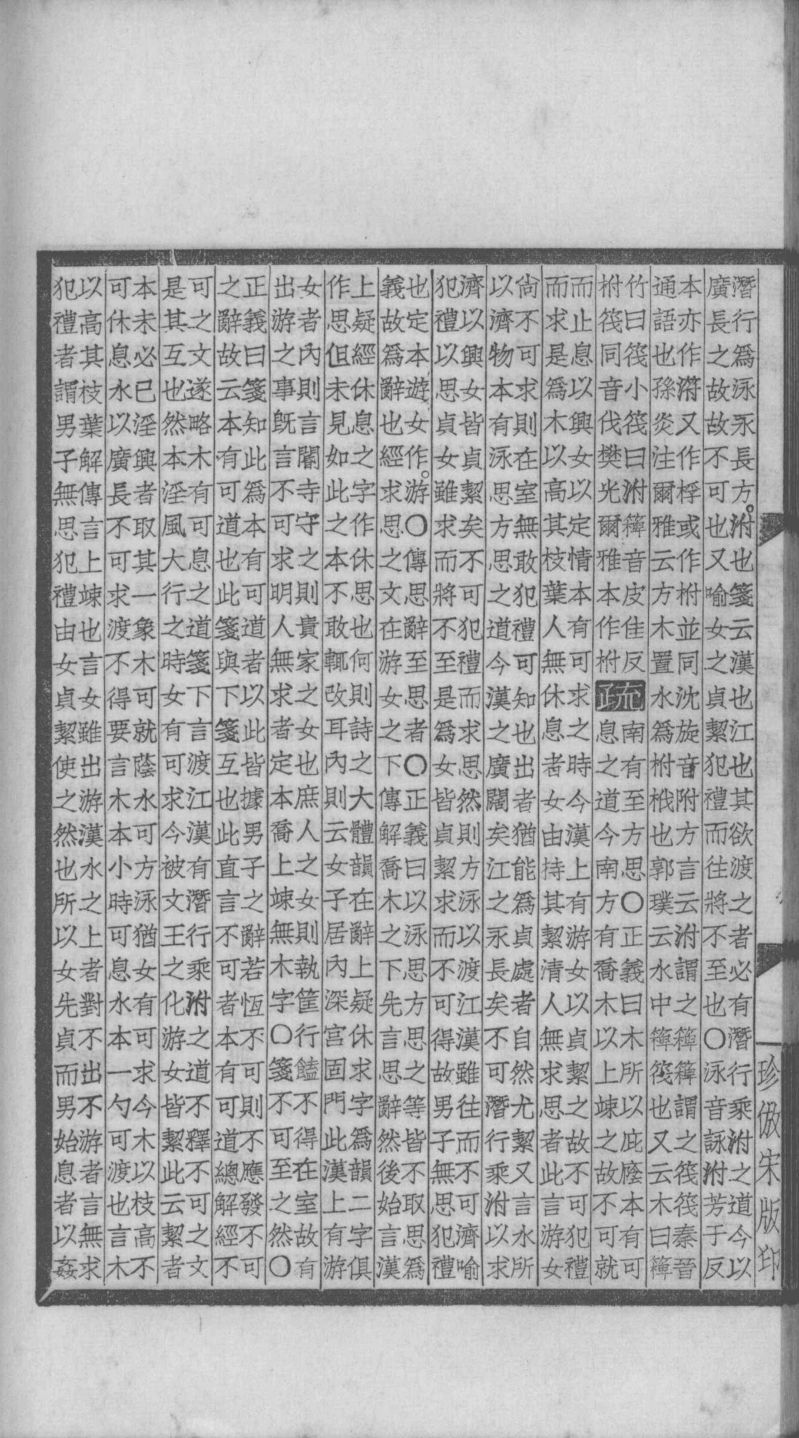 潛行爲泳永長方泭也箋云漢也江也其欲渡之者必有潛行乘泭之道今以
廣長之故故不可也又喻女之貞絜犯禮而往將不至也○泳音詠泭芳于反
本亦作𣳫又作桴或作柎並同沈旋音附方言云泭謂之𥴖𥴖謂之筏筏秦晉
通語也孫炎注爾雅云方木置水爲柎栰也郭璞云水中𥴖筏也又云木曰𥴖
竹曰筏小筏曰泭𥴖音皮佳反
柎筏同音伐樊光爾雅本作柎
疏
南有至方思○正義曰木所以庇廕本有可
息之道今南方有喬木以上竦之故不可就
而止息以興女以定情本有可求之時今漢上有游女以貞絜之故不可犯禮
而求是爲木以高其枝葉人無休息者女由持其絜清人無求思者此言游女
尙不可求則在室無敢犯禮可知也出者猶能爲貞處者自然尤絜又言水所
以濟物本有泳思方思之道今漢之廣闊矣江之永長矣不可潛行乘泭以求
濟以興女皆貞絜矣不可犯禮而求思然則方泳以渡江漢雖往而不可濟喻
犯禮以思貞女雖求而將不至是爲女皆貞絜求而不可得故男子無思犯禮
也定本遊女作游○傳思辭至思者○正義曰以泳思方思之等皆不取思爲
義故爲辭也經求思之文在游女之下傳解喬木之下先言思辭然後始言漢
上疑經休息之字作休思也何則詩之大體韻在辭上疑休求字爲韻二字俱
作思但未見如此之本不敢輒改耳內則云女子居內深宮固門此漢上有游
女者內則言閽寺守之則貴家之女也庶人之女則執筐行饁不得在室故有
出游之事旣言不可求明人無求者定本喬上竦無木字○箋不可至之然○
正義曰箋知此爲本有可道者以此皆據男子之辭若恆不可則不應發不可
之辭故云本有可道也此箋與下箋互也此直言不可者本有可道總解經不
可之文遂略木有可息之道箋下言渡江漢有潛行乘泭之道不釋不可之文
是其互也然本淫風大行之時女有可求今被文王之化游女皆絜此云絜者
本未必已淫興者取其一象木可就蔭水可方泳猶女有可求今木以枝高不
可休息水以廣長不可求渡不得要言木本小時可息水本一勺可渡也言木
以高其枝葉解傳言上竦也言女雖出游漢水之上者對不出不游者言無求
犯禮者謂男子無思犯禮由女貞絜使之然也所以女先貞而男始息者以姦
珍倣宋版印